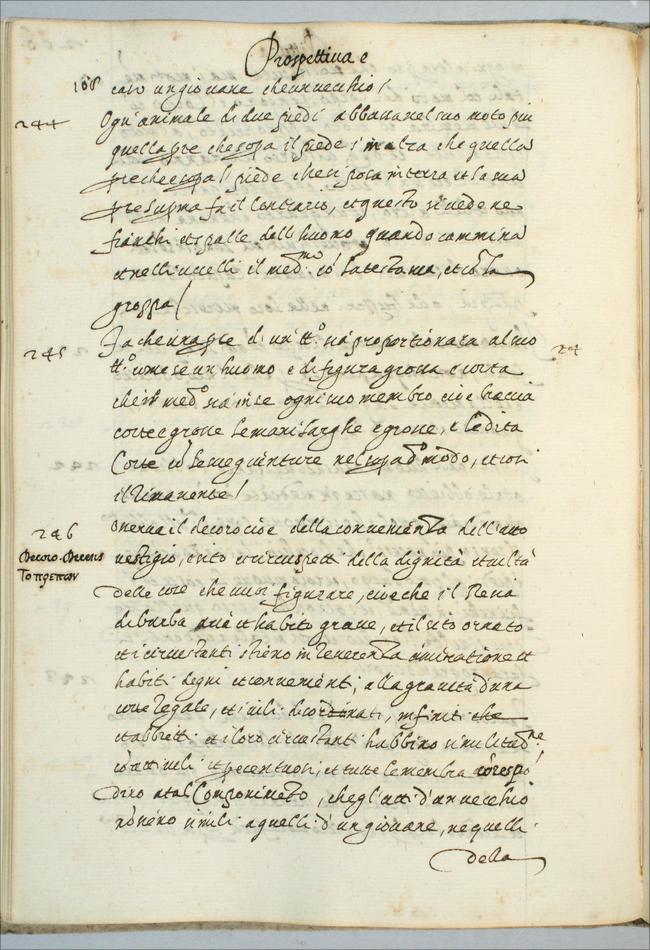 Prospettiva e
108
caso un giovane che un vecchio /
244
Ogn'animale di due piedi abbassa nel suo moto piu
quella pte che sopa il piede s'inalza che quella
pte che è sopa l piede che si posa in terra et la sua
pte suprma fa il contrario, et questo si vede ne
fianchi et spalle dell'huomo quando cammina
et nelli uccelli il medmo cō la testa sua, et cō la
groppa /
245
Fa che una pte di un tto sia proportionata al suo
24
tto come se un huomo è di figura grossa e corta
che il medo sia in se ogni suo membro cioe braccia
corte e grosse le mani larghe e grosse, e le dita
Corte cō le sue giunture nel sopado modo, et cosi
il rimanente /
246
Decoro. Decens
Το πρεπων
Osserva il decoro cioe della convenienza dell'atto
vestigio, e sito et circuspetti della dignità et viltà
delle cose che vuoi figurare, cioe che il Re sia
di barba aria et habito grave, et il sito ornato
et i circustanti stieno in reverenza amiratione et
habiti degni et convenienti, alla gravità d'una
corte regale, et i vili disordinati, infiniti che
et abbietti et i loro circustanti habbino similitudne
cō atti vili et presentuosi, et tutte le membra corespō
dino a tal Componimeto, che gl'atti d'un vecchio
nō sieno simili a quelli d'un giovane, ne quelli
della